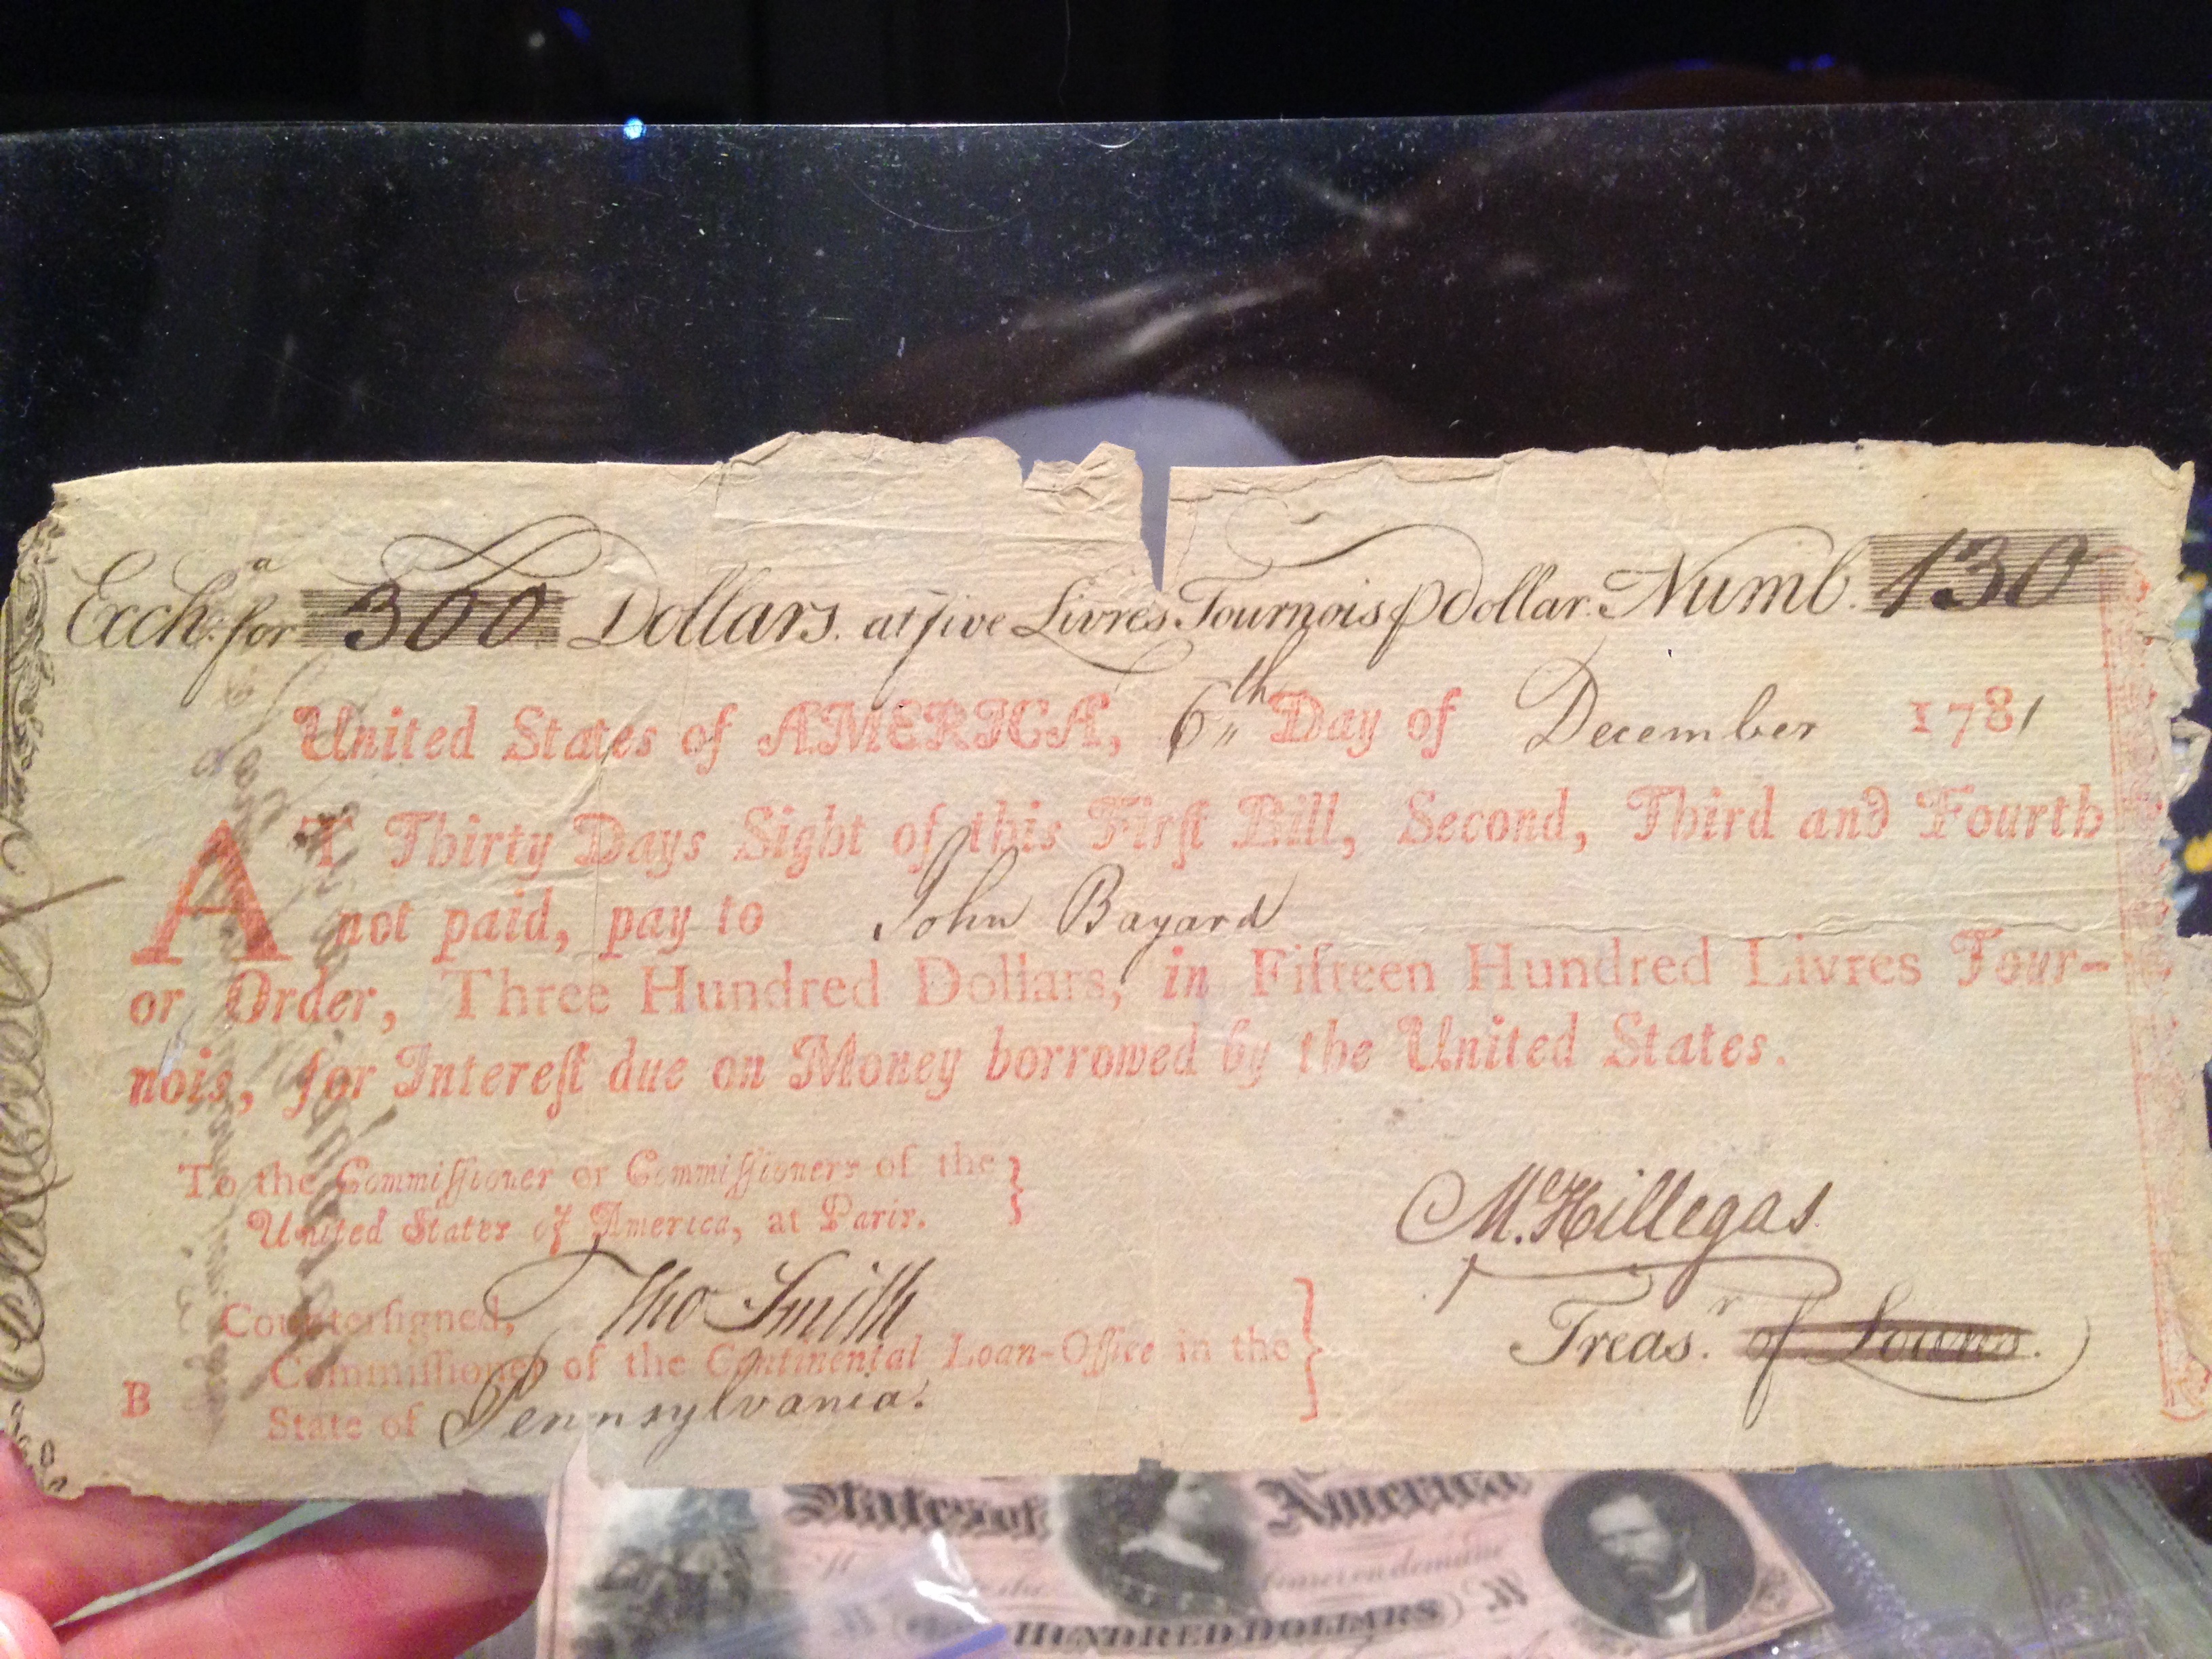 Exchª. for 300 Dollars. at five Livres Tournois ⅌ Dollar. Numb. 130
United States of AMERICA, 6th Day of December 1781
AT Thirty Days Sight of this Firſt Bill, Second, Third and Fourth
not paid, pay to John Bayard
or Order, Three Hundred Dollars, in Fifteen Hundred Livres Tour-
nois, for Intereſt due on Money borrowed by the United States.
To the Commiſſioner or Commiſſioners of the
United States of America, at Paris.
M. Hillegas
Treasʳ. of Loans.
Counterſigned, Tho Smith
Commiſſioner of the Continental Loan-Office in the
State of Pennsylvania.
B
States of America
HUNDRED DOLLARS